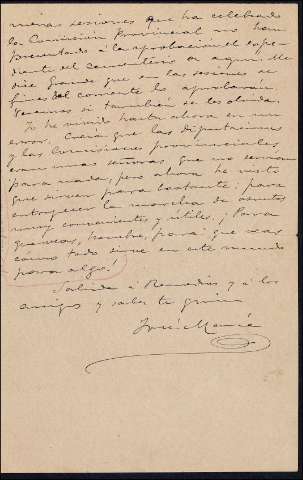 meras sesiones que ha celebrado
la Comisión Provincial no han
presentado á la aprobación el expe-
diente el cementerio de aquí. Me
dice Grande que en las sesiones de
fines del corriente lo aprobarán.
Veremos si también se les olvida.
Yo he vivido hasta ahora en un
error. Creía que las Diputaciones
y las Comisiones provinciales
eran unas señoras que no servían
para nada, pero ahora he visto
que sirven para bastante: para
entorpecer la marcha de asuntos
muy convenientes y útiles. ¡Para
que veas, hombre, para que veas
cómo todo sirve en este mundo
para algo!
Saluda á Remedios y á los
amigos y sabes te quiere
José